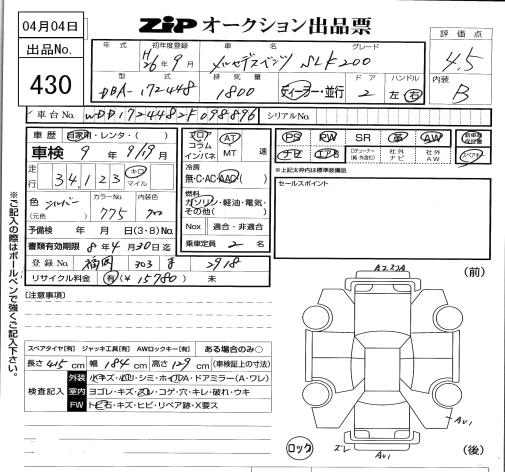 04月04日
出品No.
430
ZIP オークション出品票
評価点
4.5
内装
B
年式 初年度登録 車名 グレード
H26年9月 メルセデスベンツ SLK200
型式 排気量 ドア ハンドル
DBA-172448 1800 ディーラー・並行 2 左・右
車台No. WDD1724482F098896 シリアルNo.
車歴 自家用・レンタ・( )
車検 9年9月19日
走行 34,123 キロ マイル
色 シルバー (元色) カラーNo. 775 内装色
予備検 年 月 日(3・8)No.
書類有効期限 8年4月30日迄
登録No. 福岡 303 ま 2918
リサイクル料金 有(¥15780) 未
フロア コラム インパネ AT MT 速
冷房 無・C・AC・AAC
燃料 ガソリン・軽油・電気・その他( )
Nox 適合・非適合
乗車定員 2名
PS PW SR 革 AW 新車時保証書
ナビ エアB Dチューナー(純・外含む) 社外ナビ 社外AW スペアキー
※上記太枠内は標準装備品
セールスポイント
※ご記入の際はボールペンで強くご記入下さい。
[注意事項]
スペアタイヤ[有] ジャッキ工具[有] AWロックキー[有] ある場合のみ○
長さ 415cm 幅 184cm 高さ 129cm (車検証上の寸法)
検査記入
外装 小キズ・凹・シミ・ホイルA・ドアミラー(A・ワレ)
室内 ヨゴレ・キズ・スレ・コゲ・穴・キレ・破れ・ウキ
FW トビ石・キズ・ヒビ・リペア跡・X要ス
(前)
AU1
ロック
スレ
AU1
(後)